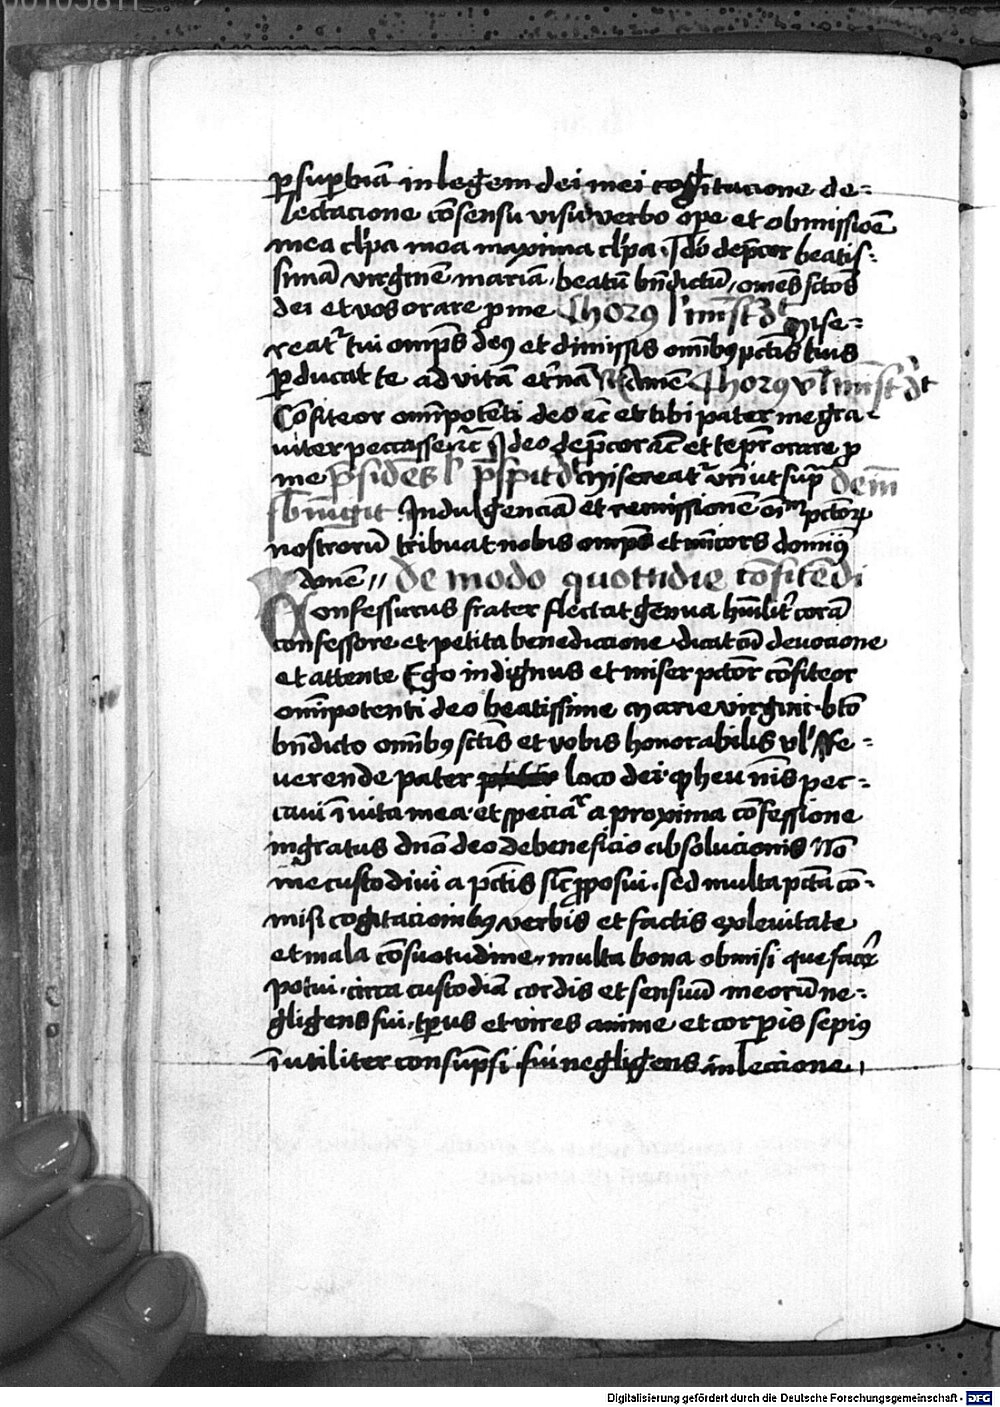 p suꝑbiã in legem dei mei cogitacione de=
lectacione cõsensu visu verbo oꝑe et obmissioẽ
mea cl'pa mea maxima cl'pa. Idõ dep̃cor beatis=
simã virginẽ mariã, beatũ bñdictũ, omẽs sctõs
dei et vos orare ꝓ me Chorꝯ l' miñst dt Mise=
reatᷣ tui omp̃s deꝯ et dimissis omĩbꝯ pctĩs tuis
ꝑducat te ad vitã etnã Amẽ Chorꝯ vl miñst dt
Cõfiteor omĩpotẽti deo et tibi pater me gra-
uiter peccasse Ideo dep̃cor et te pr̃ orare ꝓ
me p̃sidẽs l' dt Misereatᷣ vrĩ ut sup̃ deiñ
sbiũgit Indulgenciã et remissionẽ oĩm pctõꝝ
nostrorũ tribuat nobis omp̃s et miĩcors domiñꝯ
De modo quottidie cõfitẽdi
Confessurus frater flectat genua hũilit' corã
confessore et petita benediccione dicat cũ deuocione
et attente Ego indignus et miser pctõr cõfiteor
omĩpotenti deo beatissime Marie virgini btõ
bñdicto omĩbꝯ sctĩs et vobis honorabilis vl' Re=
uerende pater loco dei ꝙ heu nĩs pec=
caui ĩ vita mea et speciał a proxima cõfessione
ingratus dño deo de beneficio absolucionis Nõ
me custodiui a pctĩs sic ꝓposui. sed multa pctã cõ=
misi cogitacionibꝯ verbis et factis ex leuitate
et mala cõsuetudine, multa bona obmisi que facẽ
potui. circa custodiã cordis et sensuũ meorũ ne=
gligens fui. tp̃us et vires anime et corpis sepiꝯ
ĩutiliter consũpsi. fui negligens in leccione,
00105811
Digitalisierung gefördert durch die Deutsche Forschungsgemeinschaft - DFG